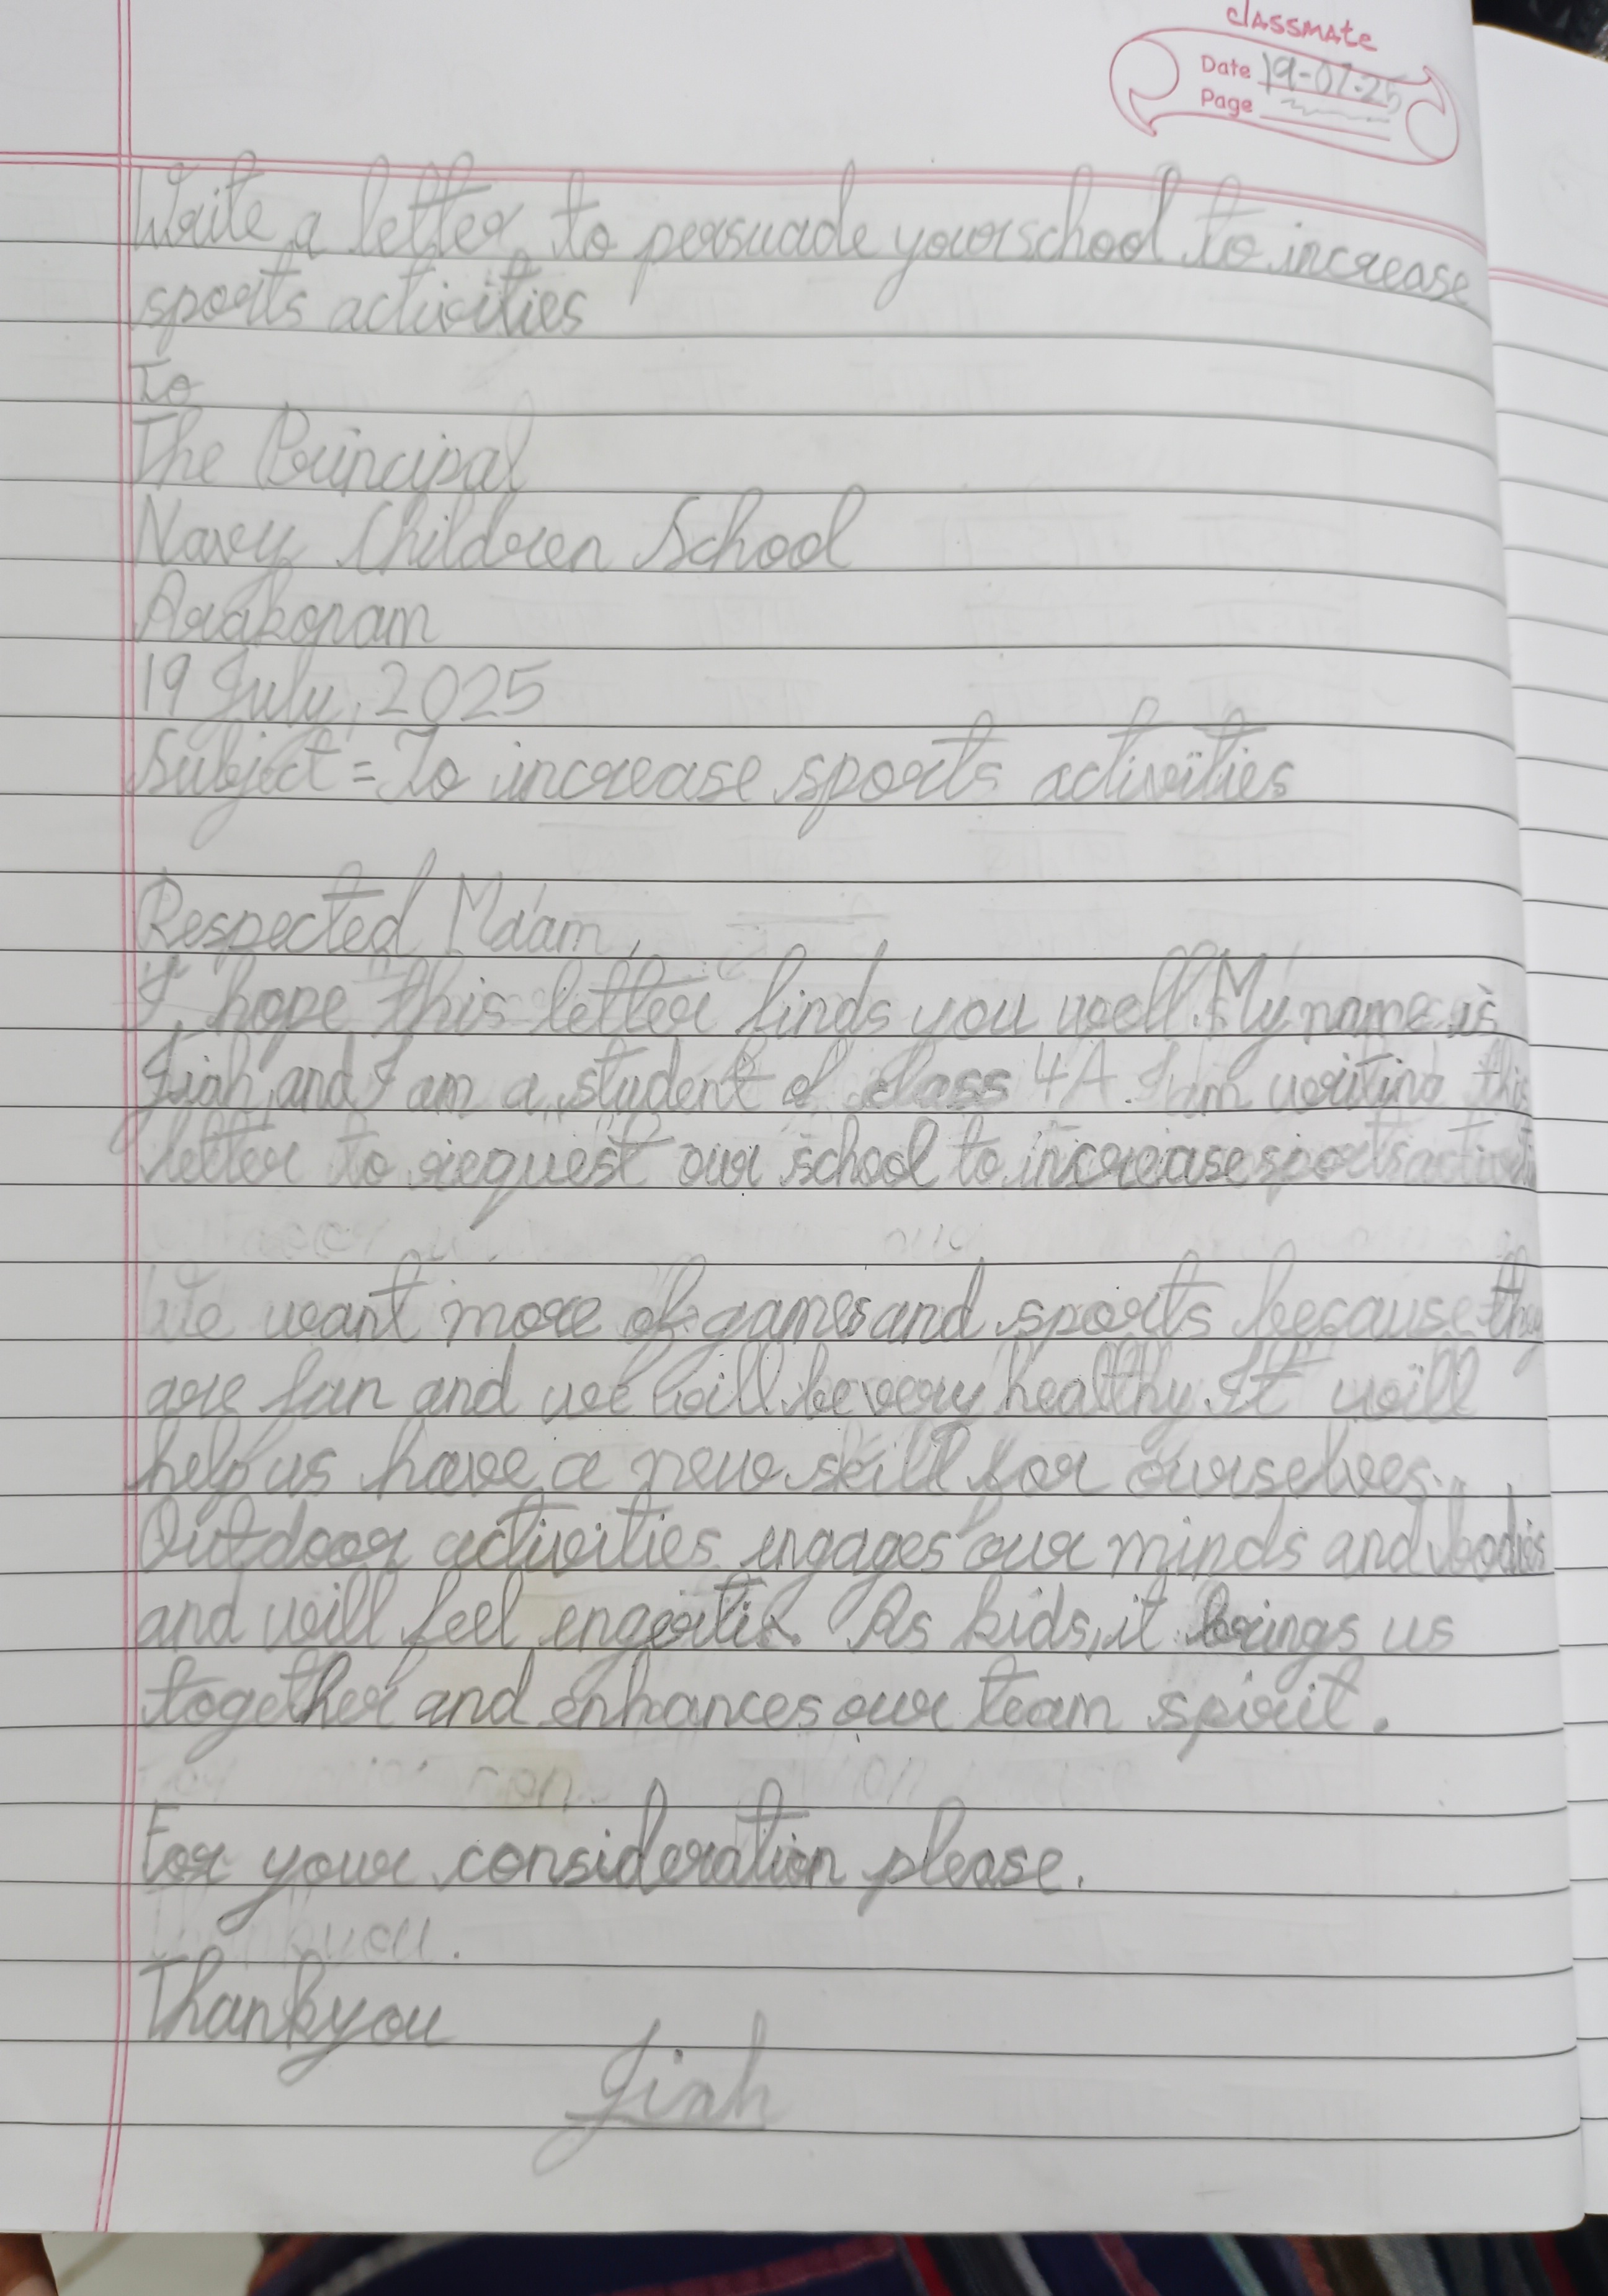 classmate
Date 19-07-25
Page
Write a letter to persuade your school to increase
sports activities
To
The Principal
Navy Children School
Arakonam
19 July, 2025
Subject = To increase sports activities
Respected Ma'am,
I hope this letter finds you well. My name is
Jiah and I am a student of class 4A. I am writing this
letter to request our school to increase sports activities
We want more of games and sports because they
are fun and we will be very healthy. It will
help us have a new skill for ourselves.
Outdoor activities engages our minds and bodies
and will feel engertic. As kids, it brings us
together and enhances our team spirit.
For your consideration please.
Thankyou
Jiah